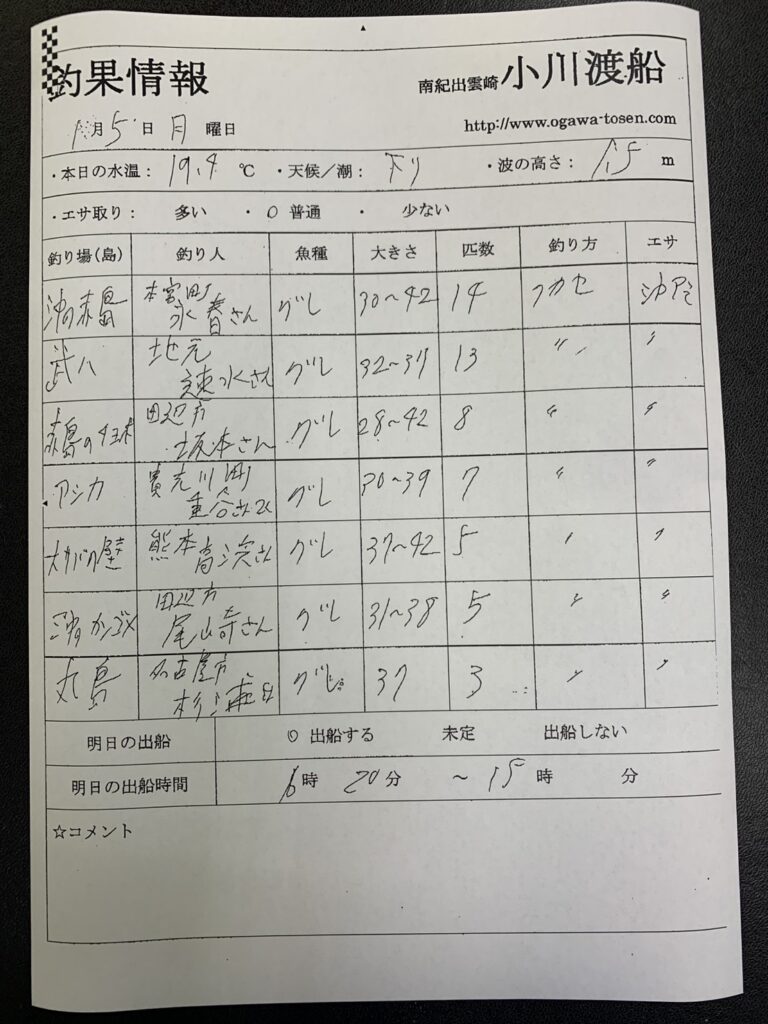 釣果情報
南紀出雲崎 小川渡船
1月5日 月 曜日
http://www.ogawa-tosen.com
・本日の水温： 19.4 ℃ ・天候／潮： 下り ・波の高さ： 1.5 m
・エサ取り： 多い ・ ○ 普通 ・ 少ない
釣り場（島） 釣り人 魚種 大きさ 匹数 釣り方 エサ
沖の赤島 本宮町 グレ 30～42 14 フカセ 沖アミ
永春さん
武八 地元 グレ 32～37 13 〃 〃
速水さん
赤島のチョボ 田辺市 グレ 28～42 8 〃 〃
坂本さん
アシカ 貴志川町 グレ 30～39 7 〃 〃
重谷さん
熊本 グレ 37～42 5 〃 〃
さん
田辺市 グレ 31～38 5 〃 〃
尾崎さん
丸島 名古屋市 グレ 37 3 〃 〃
杉浦
明日の出船 ◎ 出船する 未定 出船しない
明日の出船時間 6時 20分 ～ 15 時 分
☆コメント